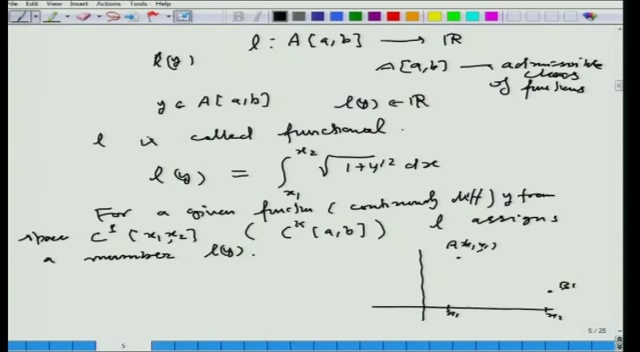 File Edit View Insert Actions Tools Help
l : A[a,b] ⟶ ℝ
l(y)
A[a,b] — admissible class of functions
y ∈ A[a,b] l(y) ∈ ℝ
l is called functional.
l(y) = ∫_{x₁}^{x₂} √(1+y'²) dx
For a given function (continuously diff) y from
space C¹[x₁,x₂] (Cᵏ[a,b]) l assigns
a number l(y).
A(x₁,y₁)
B(
x₁ x₂
5 / 25
5